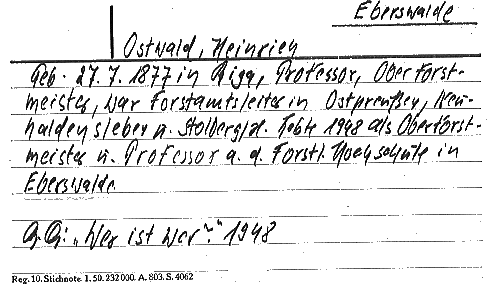 Eberswalde
Ostwald, Heinrich
Geb. 27.7.1877 in Riga, Professor, Oberforst-
meister, war Forstamtsleiter in Ostpreußen, Neu-
haldensleben u. Stolberg/d. Lebte 1948 als Oberforst-
meister u. Professor a. d. Forstl. Hochschule in
Eberswalde
"Wer ist wer?" 1948
Reg. 10. Stichnote. 1. 50. 232000. A. 803. S. 4062